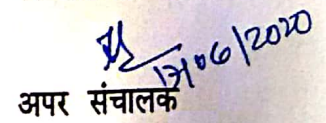 17/06/2020
अपर संचालक